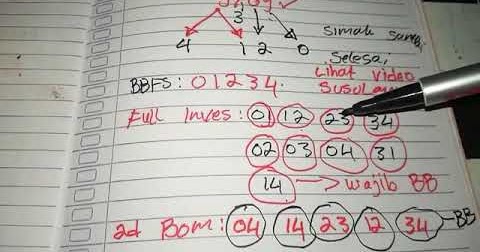 3
4 1 2 0
Simak sampai
Selesai
Lihat video
BBFS: 01234.
Susulan
Full Inves: 01 12 23 34
02 03 04 31
14 → wajib BB
2d Bom: 04 14 23 12 34 - BB